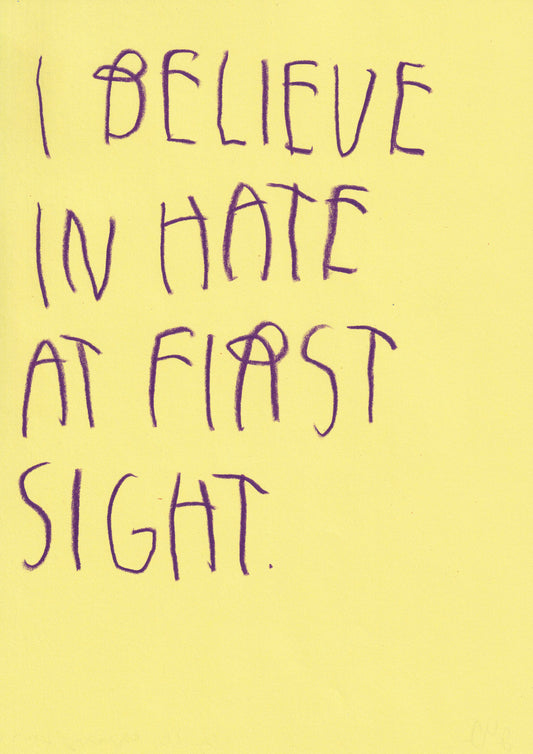 I BELIEVE
IN HATE
AT FIRST
SIGHT.